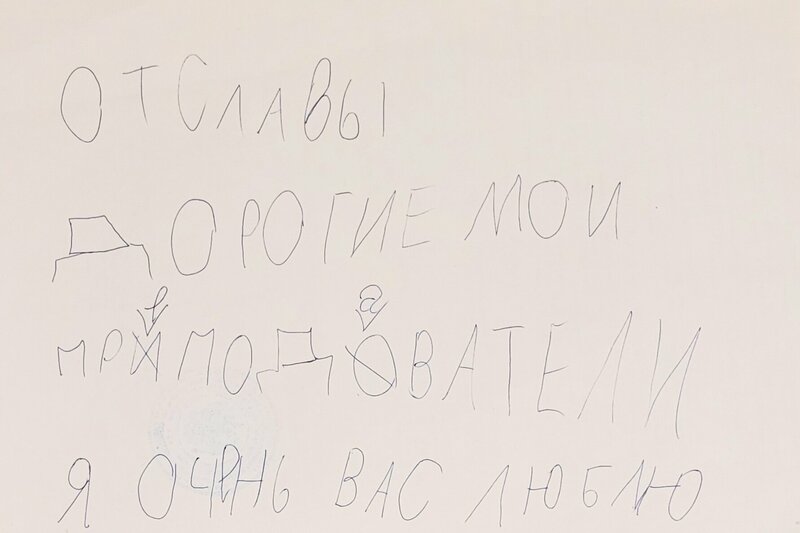 ОТ СЛАВЫ
ДОРОГИЕ МОИ
ПРЕПОДАВАТЕЛИ
Я ОЧЕНЬ ВАС ЛЮБЛЮ